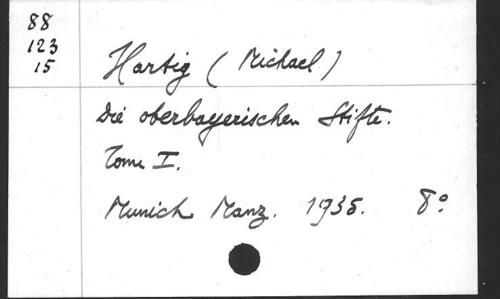 88
123
15
Hartig (Michael)
Die oberbayerischen Stifte.
Tome I.
Munich Manz. 1935. 8°